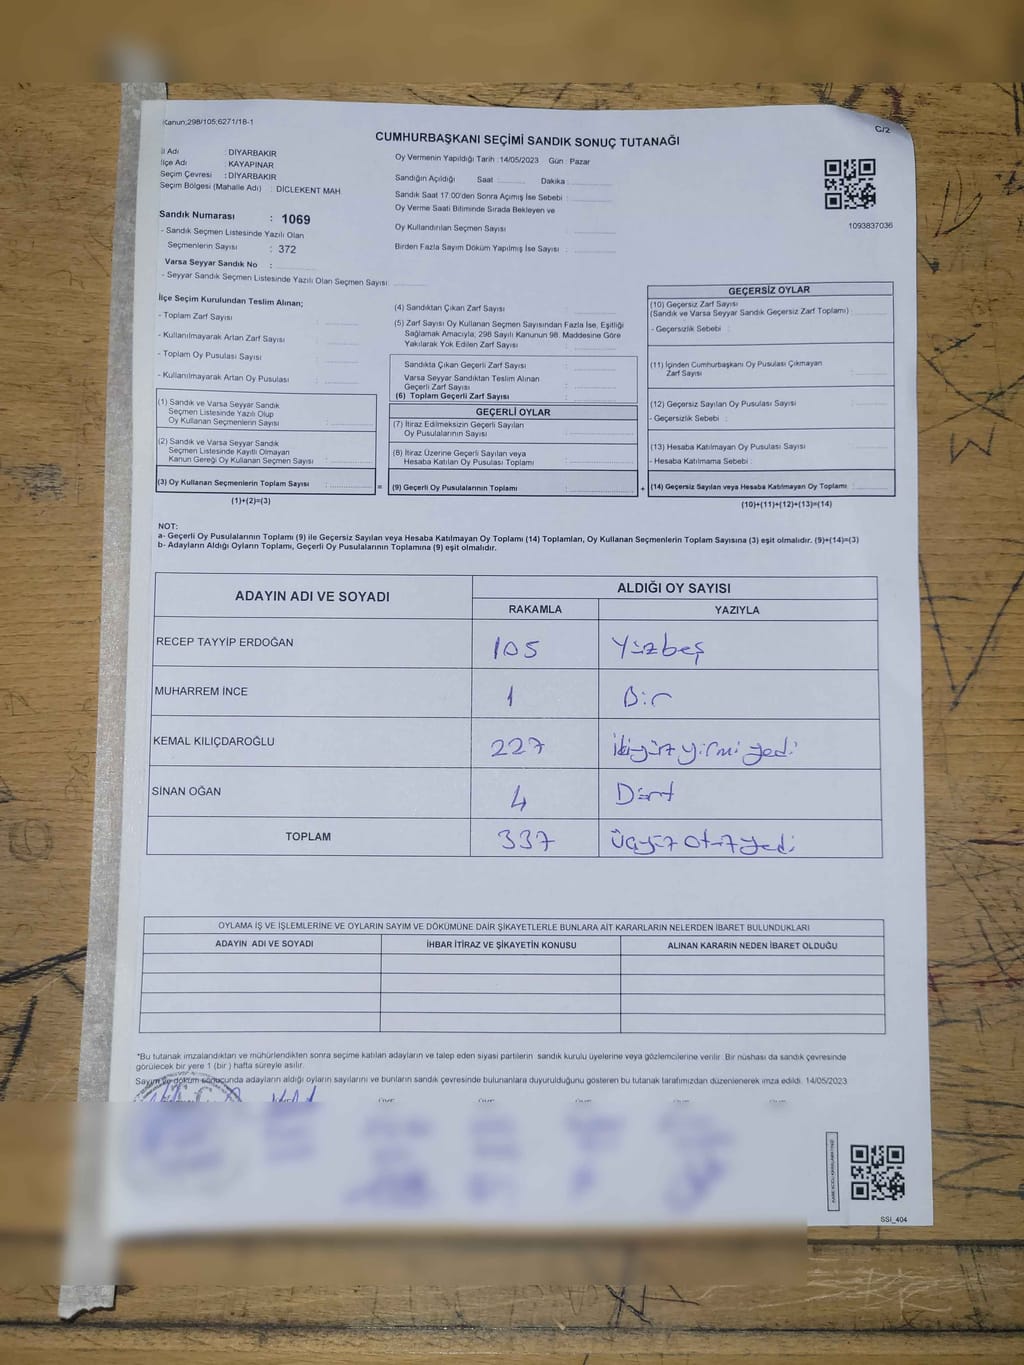 Kanun;298/105;6271/18-1
C/2
CUMHURBAŞKANI SEÇİMİ SANDIK SONUÇ TUTANAĞI
İl Adı : DİYARBAKIR
İlçe Adı : KAYAPINAR
Seçim Çevresi : DİYARBAKIR
Seçim Bölgesi (Mahalle Adı) : DİCLEKENT MAH
Sandık Numarası : 1069
- Sandık Seçmen Listesinde Yazılı Olan
Seçmenlerin Sayısı : 372
Varsa Seyyar Sandık No :
- Seyyar Sandık Seçmen Listesinde Yazılı Olan Seçmen Sayısı:
Oy Vermenin Yapıldığı Tarih :14/05/2023 Gün : Pazar
Sandığın Açıldığı Saat : Dakika :
Sandık Saat 17.00'den Sonra Açımış İse Sebebi :
Oy Verme Saati Bitiminde Sırada Bekleyen ve
Oy Kullandırılan Seçmen Sayısı :
Birden Fazla Sayım Döküm Yapılmış İse Sayısı :
1093837036
İlçe Seçim Kurulundan Teslim Alınan;
- Toplam Zarf Sayısı :
- Kullanılmayarak Artan Zarf Sayısı :
- Toplam Oy Pusulası Sayısı :
- Kullanılmayarak Artan Oy Pusulası :
(1) Sandık ve Varsa Seyyar Sandık
Seçmen Listesinde Yazılı Olup
Oy Kullanan Seçmenlerin Sayısı :
(2) Sandık ve Varsa Seyyar Sandık
Seçmen Listesinde Kayıtlı Olmayan
Kanun Gereği Oy Kullanan Seçmen Sayısı :
(3) Oy Kullanan Seçmenlerin Toplam Sayısı :
(1)+(2)=(3)
(4) Sandıktan Çıkan Zarf Sayısı :
(5) Zarf Sayısı Oy Kullanan Seçmen Sayısından Fazla İse, Eşitliği
Sağlamak Amacıyla; 298 Sayılı Kanunun 98. Maddesine Göre
Yakılarak Yok Edilen Zarf Sayısı :
Sandıkta Çıkan Geçerli Zarf Sayısı :
Varsa Seyyar Sandıktan Teslim Alınan
Geçerli Zarf Sayısı :
(6) Toplam Geçerli Zarf Sayısı :
GEÇERLİ OYLAR
(7) İtiraz Edilmeksizin Geçerli Sayılan
Oy Pusulalarının Sayısı :
(8) İtiraz Üzerine Geçerli Sayılan veya
Hesaba Katılan Oy Pusulası Toplamı :
= (9) Geçerli Oy Pusulalarının Toplamı : +
GEÇERSİZ OYLAR
(10) Geçersiz Zarf Sayısı
(Sandık ve Varsa Seyyar Sandık Geçersiz Zarf Toplamı) :
- Geçersizlik Sebebi :
(11) İçinden Cumhurbaşkanı Oy Pusulası Çıkmayan
Zarf Sayısı :
(12) Geçersiz Sayılan Oy Pusulası Sayısı :
- Geçersizlik Sebebi :
(13) Hesaba Katılmayan Oy Pusulası Sayısı :
- Hesaba Katılmama Sebebi :
(14) Geçersiz Sayılan veya Hesaba Katılmayan Oy Toplamı :
(10)+(11)+(12)+(13)=(14)
NOT:
a- Geçerli Oy Pusulalarının Toplamı (9) ile Geçersiz Sayılan veya Hesaba Katılmayan Oy Toplamı (14) Toplamları, Oy Kullanan Seçmenlerin Toplam Sayısına (3) eşit olmalıdır. (9)+(14)=(3)
b- Adayların Aldığı Oyların Toplamı, Geçerli Oy Pusulalarının Toplamına (9) eşit olmalıdır.
ADAYIN ADI VE SOYADI ALDIĞI OY SAYISI
RAKAMLA YAZIYLA
RECEP TAYYİP ERDOĞAN 105 Yüzbeş
MUHARREM İNCE 1 Bir
KEMAL KILIÇDAROĞLU 227 İkiyüzyirmiyedi
SİNAN OĞAN 4 Dört
TOPLAM 337 Üçyüzotuzyedi
OYLAMA İŞ VE İŞLEMLERİNE VE OYLARIN SAYIM VE DÖKÜMÜNE DAİR ŞİKAYETLERLE BUNLARA AİT KARARLARIN NELERDEN İBARET BULUNDUKLARI
ADAYIN ADI VE SOYADI İHBAR İTİRAZ VE ŞİKAYETİN KONUSU ALINAN KARARIN NEDEN İBARET OLDUĞU
*Bu tutanak imzalandıktan ve mühürlendikten sonra seçime katılan adayların ve talep eden siyasi partilerin sandık kurulu üyelerine veya gözlemcilerine verilir. Bir nüshası da sandık çevresinde
görülecek bir yere 1 (bir ) hafta süreyle asılır.
Sayım ve döküm sonucunda adayların aldığı oyların sayılarını ve bunların sandık çevresinde bulunanlara duyurulduğunu gösteren bu tutanak tarafımızdan düzenlenerek imza edildi. 14/05/2023
SSİ_404